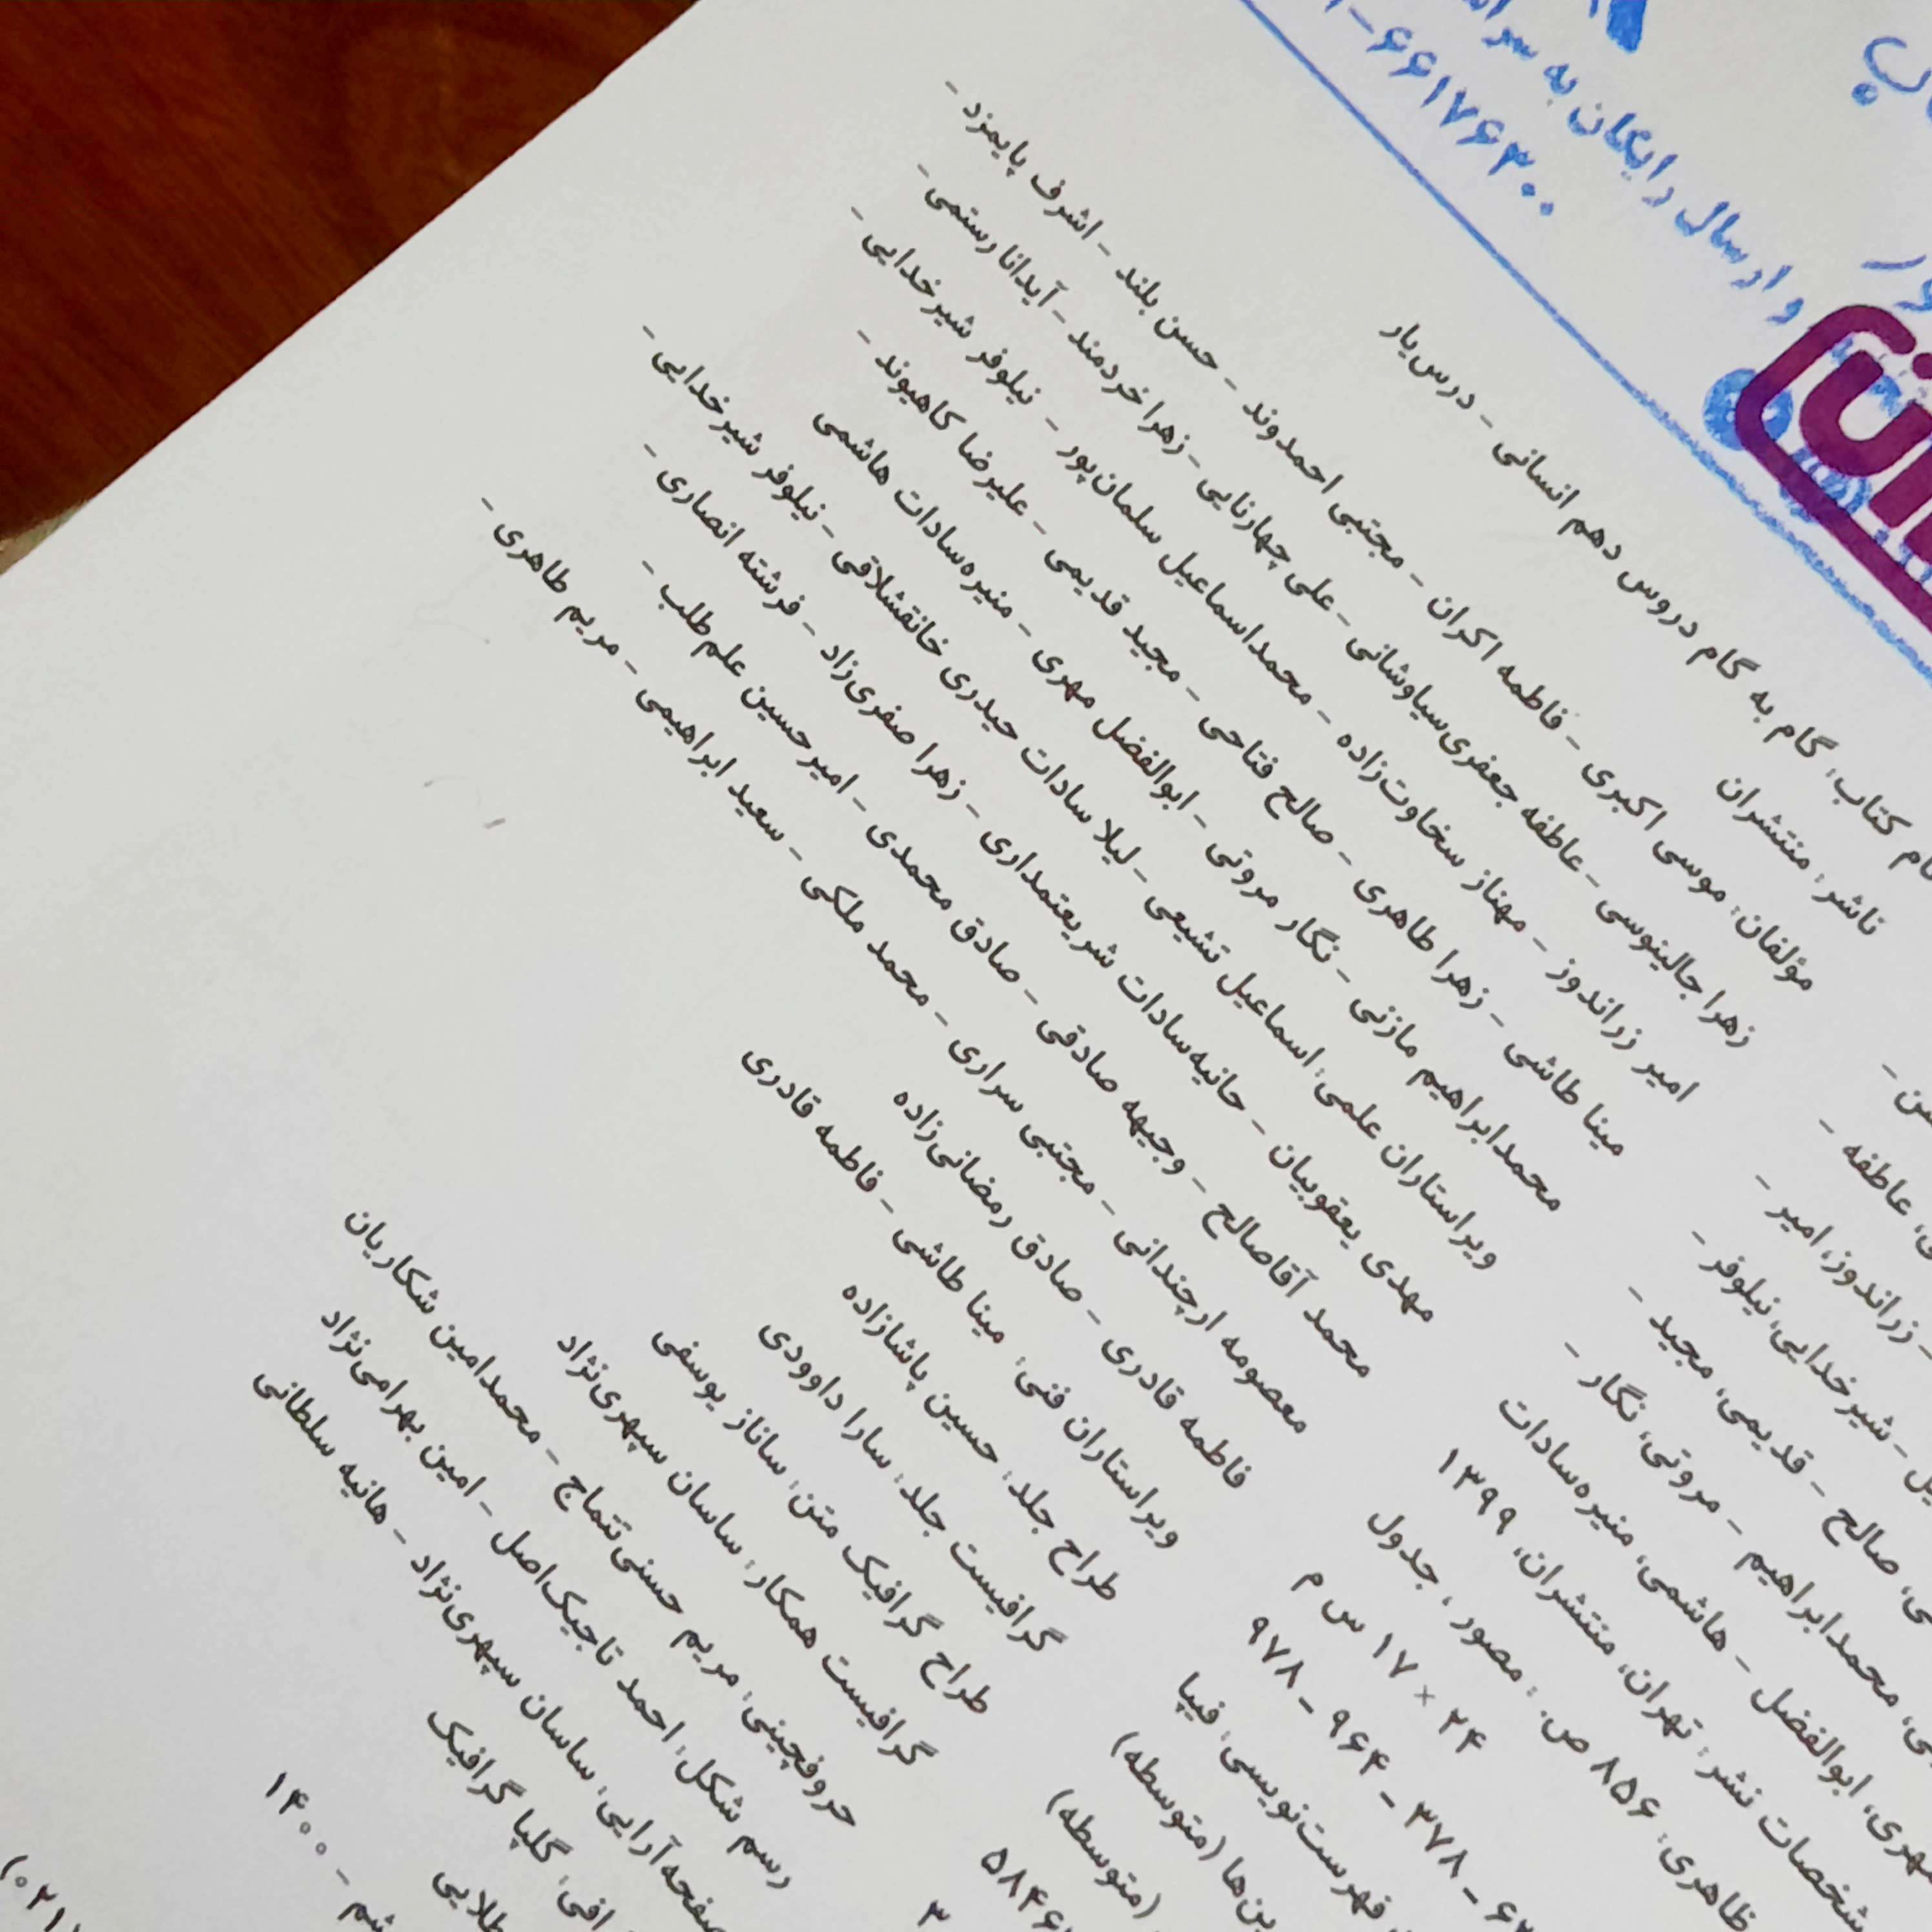 و ارسال رایگان به
۶۶۱۷۶۳۰۰
کتاب: گام به گام دروس دهم انسانی - درس‌یار
ناشر: منتشران
مؤلفان: موسی اکبری - فاطمه اکران - مجتبی احمدوند - حسن بلند - اشرف پایمزد -
زهرا جالینوسی - عاطفه جعفری‌سیاوشانی - علی چهارتایی - زهرا خردمند - آیدانا رستمی -
امیر زراندوز - مهناز سخاوت‌زاده - محمداسماعیل سلمان‌پور - نیلوفر شیرخدایی -
مینا طاشی - زهرا طاهری - صالح فتاحی - مجید قدیمی - علیرضا کاهیوند -
محمدابراهیم مازنی - نگار مروتی - ابوالفضل مهری - منیره‌سادات هاشمی
ویراستاران علمی: اسماعیل تشیعی - لیلا سادات حیدری خانقشلاقی - نیلوفر شیرخدایی -
مهدی یعقوبیان - حانیه‌سادات شریعتمداری - زهرا صفری‌زاد - فرشته انصاری -
محمد آقاصالح - وجیهه صادقی - صادق محمدی - امیرحسین علم‌طلب -
معصومه ارچندانی - مجتبی سراری - محمد ملکی - سعید ابراهیمی - مریم طاهری -
فاطمه قادری - صادق رمضانی‌زاده
ویراستاران فنی: مینا طاشی - فاطمه قادری
طراح جلد: حسین پاشازاده
گرافیست جلد: سارا داوودی
طراح گرافیک متن: ساناز یوسفی
گرافیست همکار: ساسان سپهری‌نژاد
حروفچینی: مریم حسنی‌تتماج - محمدامین شکاریان
رسم شکل: احمد تاجیک‌اصل - امین بهرامی‌نژاد
صفحه‌آرایی: ساسان سپهری‌نژاد - هانیه سلطانی
گلپا گرافیک
طلایی
- ۱۴۰۰
عاطفه -
- زراندوز، امیر -
- شیرخدایی، نیلوفر -
صالح - قدیمی، مجید -
محمدابراهیم - مروتی، نگار -
ابوالفضل - هاشمی، منیره‌سادات
نشر: تهران، منتشران، ۱۳۹۹
ظاهری: ۸۵۶ ص.: مصور، جدول
۲۴ × ۱۷ س م
۹۷۸ - ۹۶۴ - ۳۷۸ -
فهرست‌نویسی: فیپا
(متوسطه)
(متوسطه)